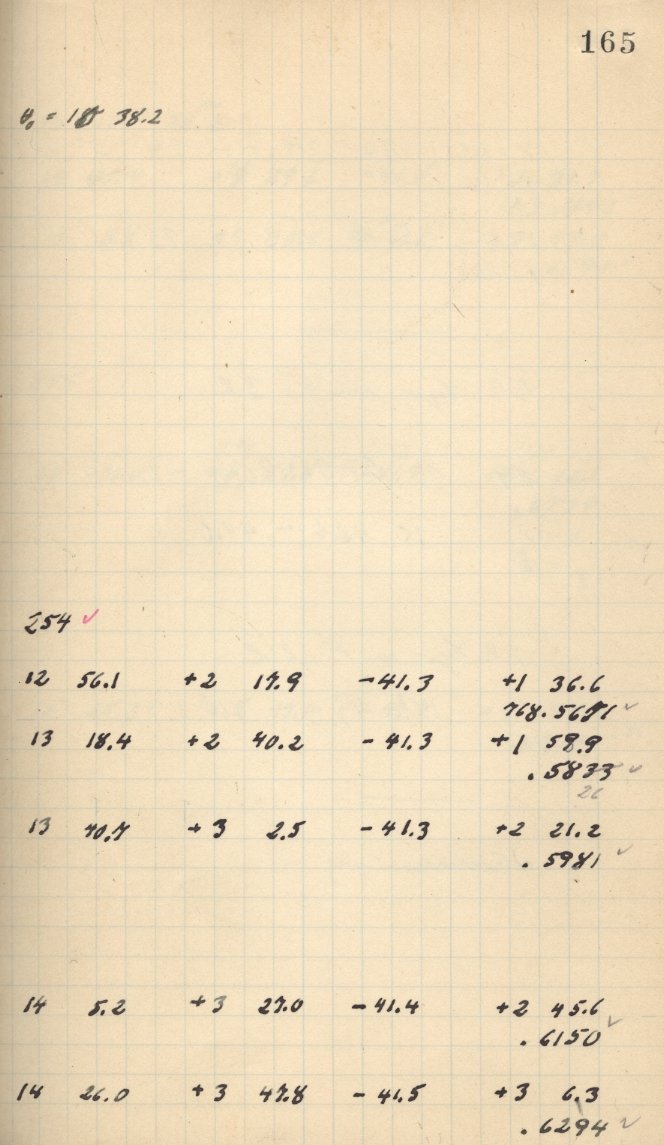 165
θ₀ = 18 38.2
254 ✓
12 56.1 +2 17.9 -41.3 +1 36.6
768.5671 ✓
13 18.4 +2 40.2 -41.3 +1 58.9
.5833 ✓
26
13 40.7 +3 2.5 -41.3 +2 21.2
.5981 ✓
14 5.2 +3 27.0 -41.4 +2 45.6
.6150 ✓
14 26.0 +3 47.8 -41.5 +3 6.3
.6294 ✓